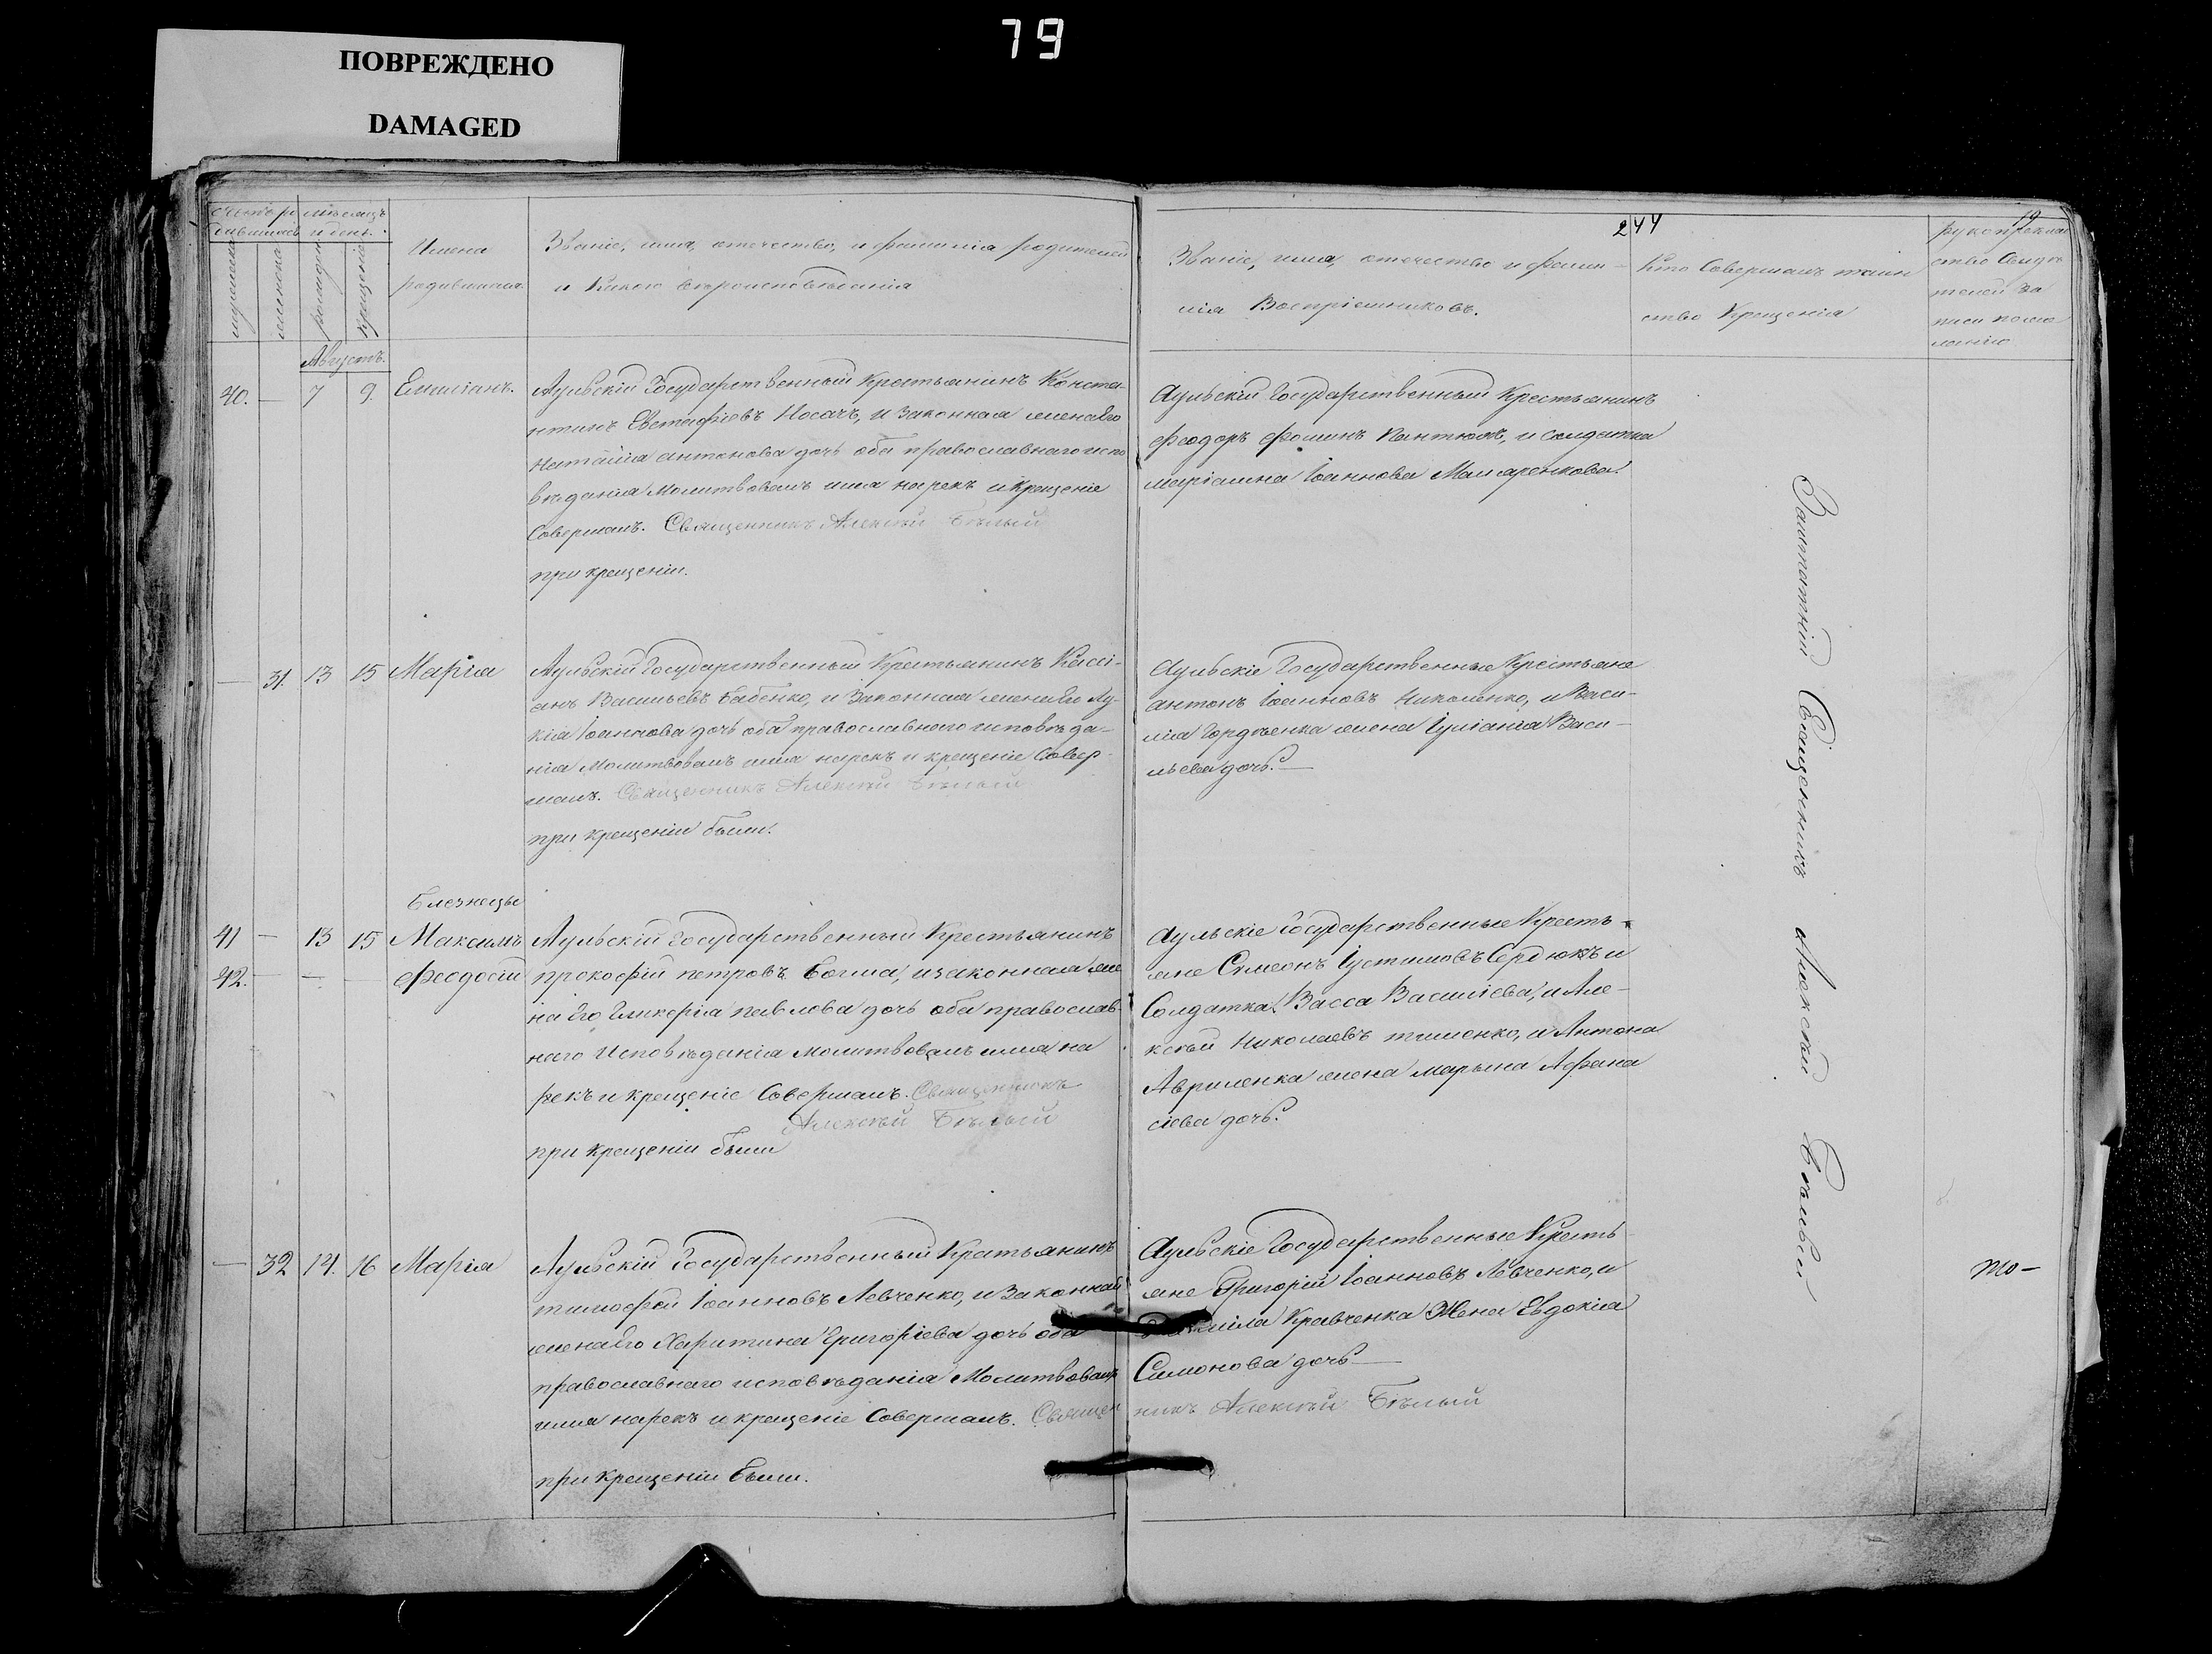 79
ПОВРЕЖДЕНО
DAMAGED
244
19
мѣсяцъ
и день.
мужеска
женска
рожденія
крещенія
Имена
родившихся.
Званіе, имя, отечество, и фамилія родителей
и какого вѣроисповѣданія
Званіе, имя, отечество и фами-
лія Воспріемниковъ.
Кто Совершалъ таин
ство Крещенія
рукоприклад
ство Свидѣ
телей за
писи по же
ланію
Августъ.
40. — 7 9. Емиліанъ.
Аульскій Государственный Крестьянинъ Конста-
нтинъ Евстафіевъ Носачъ, и Законная жена Его
Наталія Антонова дочь оба православнаго испо
вѣданія Молитвовалъ имя нарекъ и Крещеніе
Совершалъ. Священникъ Алексѣй Бѣлый
при крещеніи.
Аульскій Государственный Крестьянинъ
Феодоръ Фоминъ Пантюхъ, и Солдатка
Маріамна Іоаннова
— 31. 13 15 Марія
Аульскій Государственный Крестьянинъ Касі-
анъ Васильевъ Бабенко, и Законная жена Его Лу-
кія Іоаннова дочь оба православнаго исповѣда-
нія Молитвовалъ имя нарекъ и крещеніе Совер-
шалъ. Священникъ Алексѣй Бѣлый
при крещеніи были.
Аульскіе Государственные Крестьяне
Антонъ Іоанновъ Николенко, и Васи-
лія Гордѣенка жена Іуліанія Васи-
льева дочь.—
Близнецы
41 — 13 15 Максимъ
42. — — — Феодосій
Аульскій Государственный Крестьянинъ
Прокофій Петровъ Богма, и законная же
на Его Гликерія Павлова дочь оба православ-
наго Исповѣданія Молитвовалъ имя на
рекъ и крещеніе Совершалъ. Священникъ
Алексѣй Бѣлый
при крещеніи были
Аульскіе Государственные Кресть-
яне Симеонъ Іустимовъ Сердюкъ и
Солдатка Васса Василіева, и Але-
ксѣй Николаевъ Тименко, и Антона
Авриленка жена Марьина Афана
сіева дочь.
— 32 14. 16 Марія
Аульскій Государственный Крестьянинъ
Тимофей Іоанновъ Левченко, и Законная
жена Его Харитина Григоріева дочь оба
православнаго исповѣданія Молитвовалъ
имя нарекъ и крещеніе Совершалъ. Священ
никъ Алексѣй Бѣлый
при крещеніи были.
Аульскіе Государственные Кресть-
яне Григорій Іоанновъ Левченко, и
Кравченка Жена Евдокія
Симонова дочь—
Заштатный Священникъ Алексѣй Бѣлый
то—